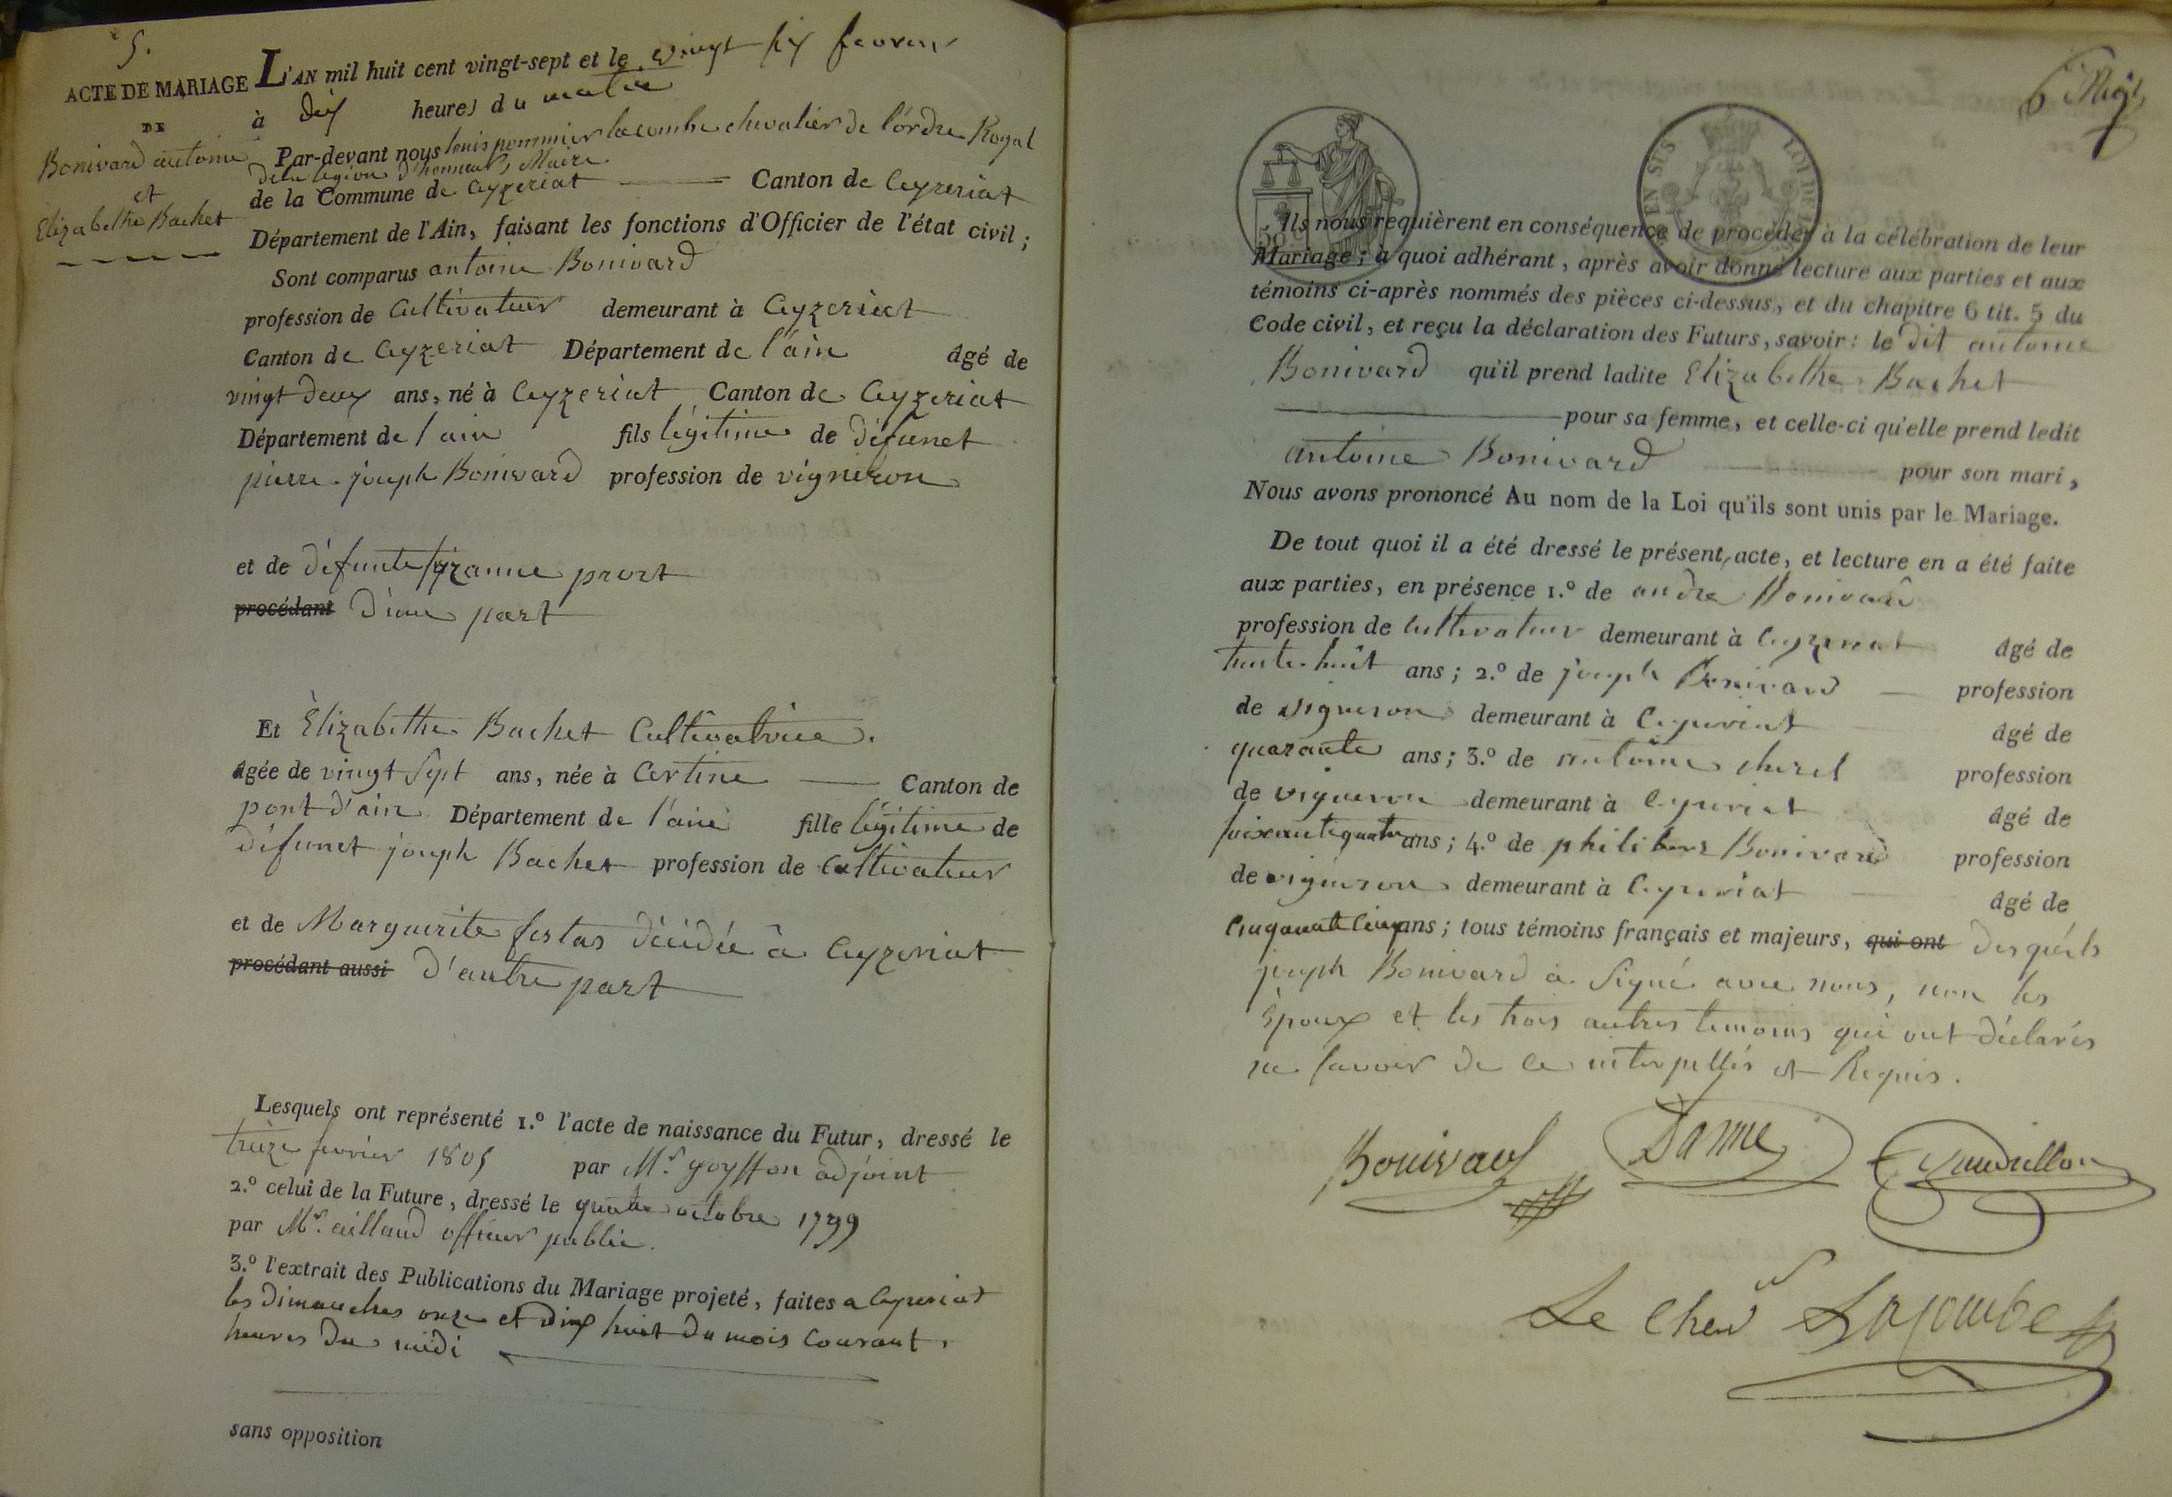 5.
ACTE DE MARIAGE
DE
Bonivard antoine
et
Elizabethe Bachet
L'AN mil huit cent vingt-sept et le vingt six fevrier
à dix heures du matin
Par-devant nous louis pommier lacombe chevalier de l'ordre Royal
de la légion d'honneur, Maire
de la Commune de Ceyzeriat Canton de Ceyzeriat
Département de l'Ain, faisant les fonctions d'Officier de l'état civil ;
Sont comparus antoine Bonivard
profession de Cultivateur demeurant à Ceyzeriat
Canton de Ceyzeriat Département de l'ain âgé de
vingt deux ans, né à Ceyzeriat Canton de Ceyzeriat
Département de l'ain fils légitime de défunct
pierre joseph Bonivard profession de vigneron
et de défunte suzanne prost
procédant d'une part
Et Èlizabethe Bachet Cultivatrice.
âgée de vingt sept ans, née à Certine Canton de
pont d'ain Département de l'ain fille légitime de
défunct joseph Bachet profession de Cultivateur
et de Marguerite festas décédée à Ceyzeriat
procédant aussi d'autre part
Lesquels ont représenté 1.º l'acte de naissance du Futur, dressé le
treize fevrier 1805 par Mr. goyffon adjoint
2.º celui de la Future, dressé le quatre octobre 1799
par Mr. aillaud officier public.
3.º l'extrait des Publications du Mariage projeté, faites a Ceyzeriat
les dimanches onze et dix huit du mois Courant,
heures du midi
sans opposition
Ils nous requièrent en conséquence de procéder à la célébration de leur
Mariage ; à quoi adhérant, après avoir donné lecture aux parties et aux
témoins ci-après nommés des pièces ci-dessus, et du chapitre 6 tit. 5 du
Code civil, et reçu la déclaration des Futurs, savoir : le dit antoine
Bonivard qu'il prend ladite Elizabethe Bachet
pour sa femme, et celle-ci qu'elle prend ledit
antoine Bonivard pour son mari,
Nous avons prononcé Au nom de la Loi qu'ils sont unis par le Mariage.
De tout quoi il a été dressé le présent acte, et lecture en a été faite
aux parties, en présence 1.º de andre Bonivard
profession de Cultivateur demeurant à Ceyzeriat âgé de
trente huit ans ; 2.º de joseph Bonivard profession
de vigneron demeurant à Ceyzeriat âgé de
quarante ans ; 3.º de antoine profession
de vigneron demeurant à Ceyzeriat âgé de
soixante quatre ans ; 4.º de philibert Bonivard profession
de vigneron demeurant à Ceyzeriat âgé de
Cinquante Cinq ans ; tous témoins français et majeurs, qui ont desquels
joseph Bonivard à signé avec nous, non les
époux et les trois autres temoins qui ont déclarés
ne savoir de ce interpellés et Requis.
Bonivard Danne
Le Chev. Lacombe